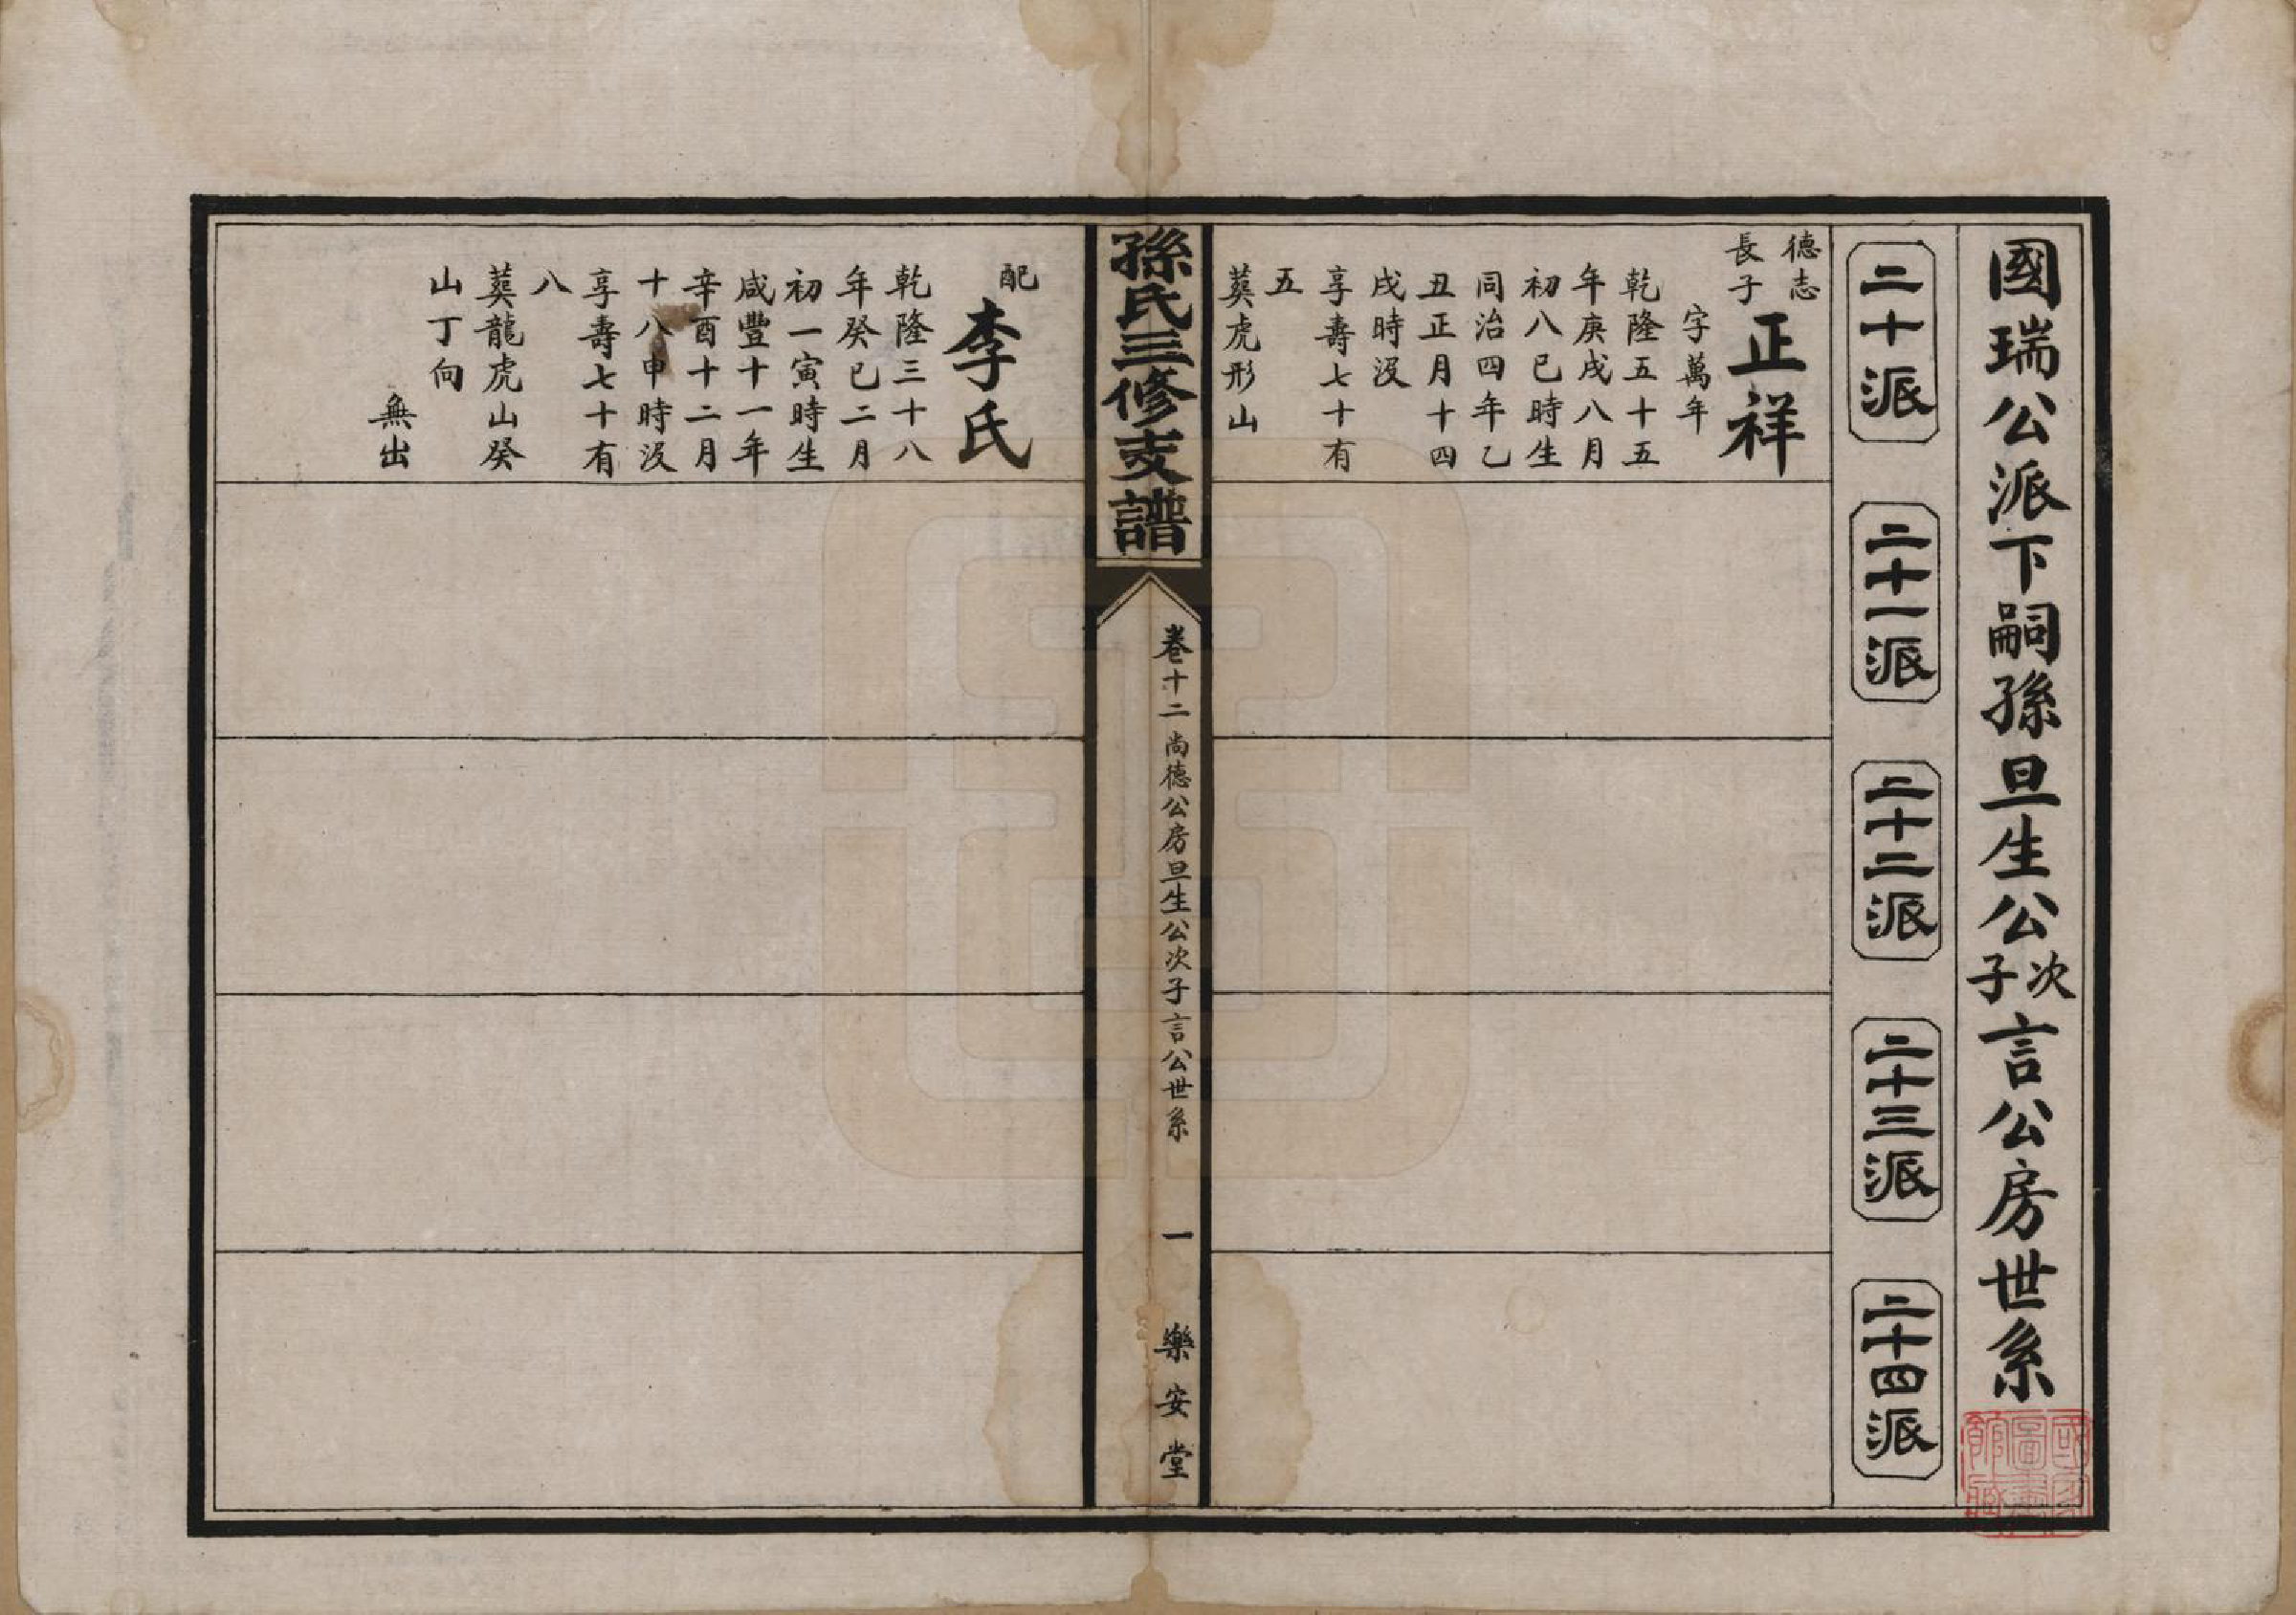 國瑞公派下嗣孫旦生公次子言公房世系
二十派
二十一派
二十二派
二十三派
二十四派
德志
長子
正祥
字萬年
乾隆五十五
年庚戌八月
初八巳時生
同治四年乙
丑正月十四
戌時没
享壽七十有
五
葬虎形山
孫氏三修支譜
卷十二 尚德公房旦生公次子言公世系
一
樂安堂
配
李氏
乾隆三十八
年癸巳二月
初一寅時生
咸豐十一年
辛酉十二月
十八申時没
享壽七十有
八
葬龍虎山癸
山丁向
無出
國家圖書館藏